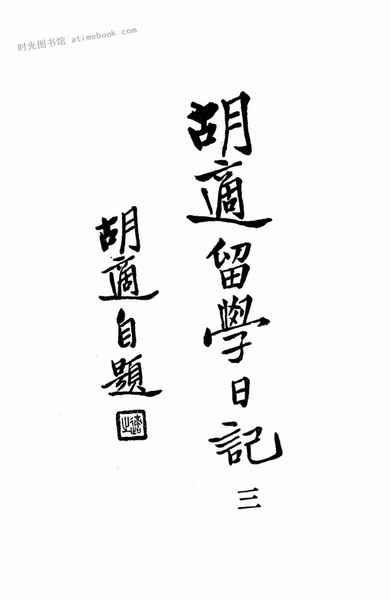 时光图书馆 atimebook.com
胡適留學日記
三
胡適自題
適之